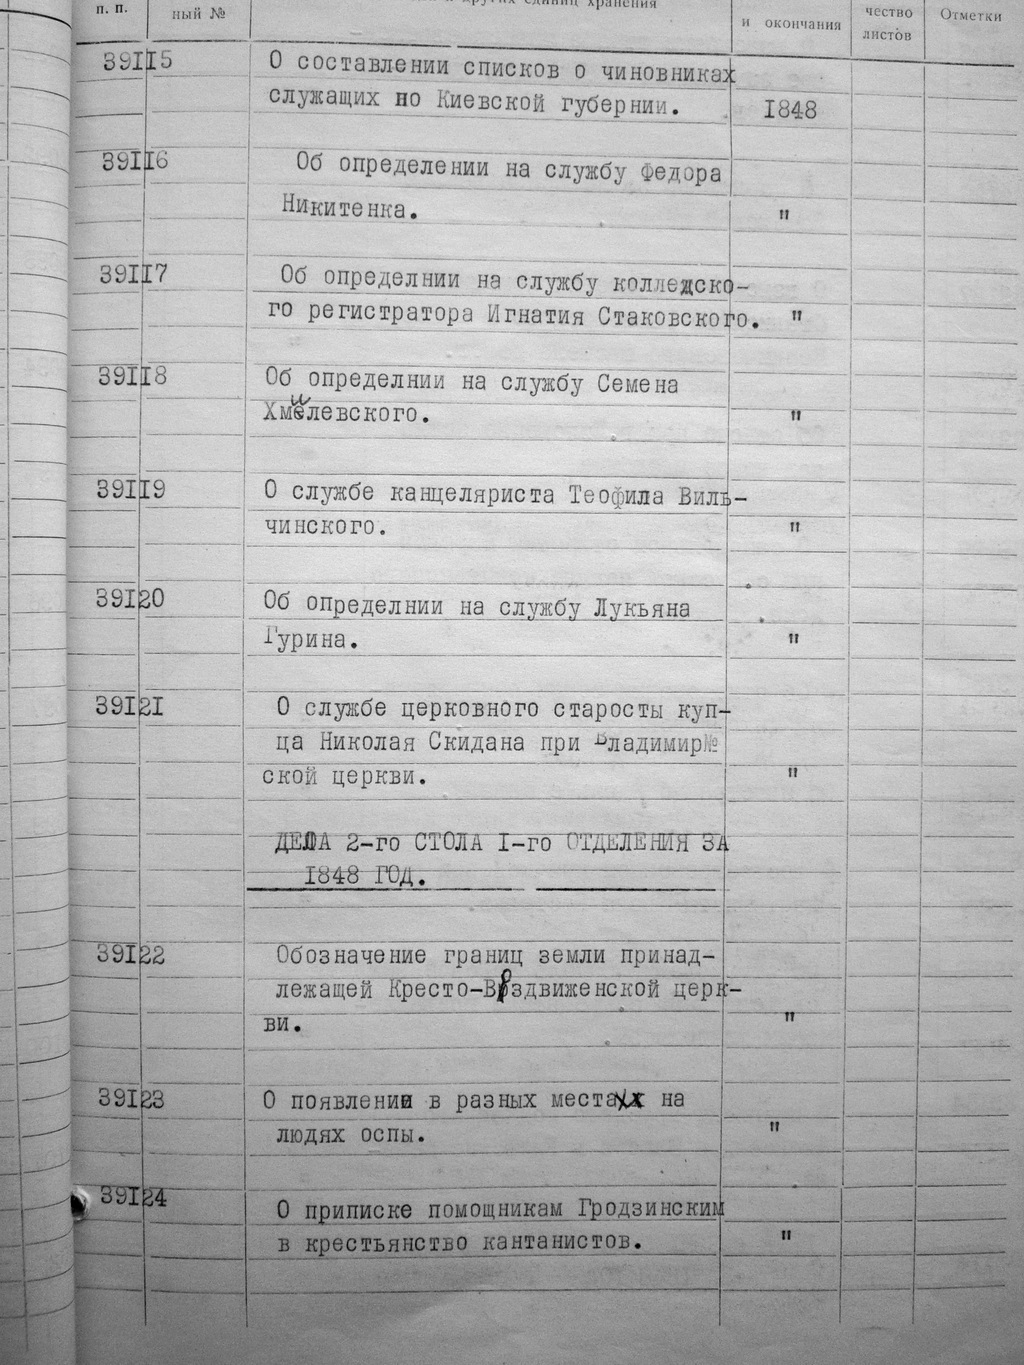 п. п.
ный №
других единиц хранения
и окончания
чество
листов
Отметки
39115
О составлении списков о чиновниках
служащих по Киевской губернии.
1848
39116
Об определении на службу Федора
Никитенка.
"
39117
Об определнии на службу колледско-
го регистратора Игнатия Стаковского.
"
39118
Об определнии на службу Семена
Хмилевского.
"
39119
О службе канцеляриста Теофила Виль-
чинского.
"
39120
Об определнии на службу Лукьяна
Гурина.
"
39121
О службе церковного старосты куп-
ца Николая Скидана при Владимир№
ской церкви.
"
ДЕЛА 2-го СТОЛА I-го ОТДЕЛЕНИЯ ЗА
1848 ГОД.
39122
Обозначение границ земли принад-
лежащей Кресто-Воздвиженской церк-
ви.
"
39123
О появлении в разных местах на
людях оспы.
"
39124
О приписке помощникам Гродзинским
в крестьянство кантанистов.
"